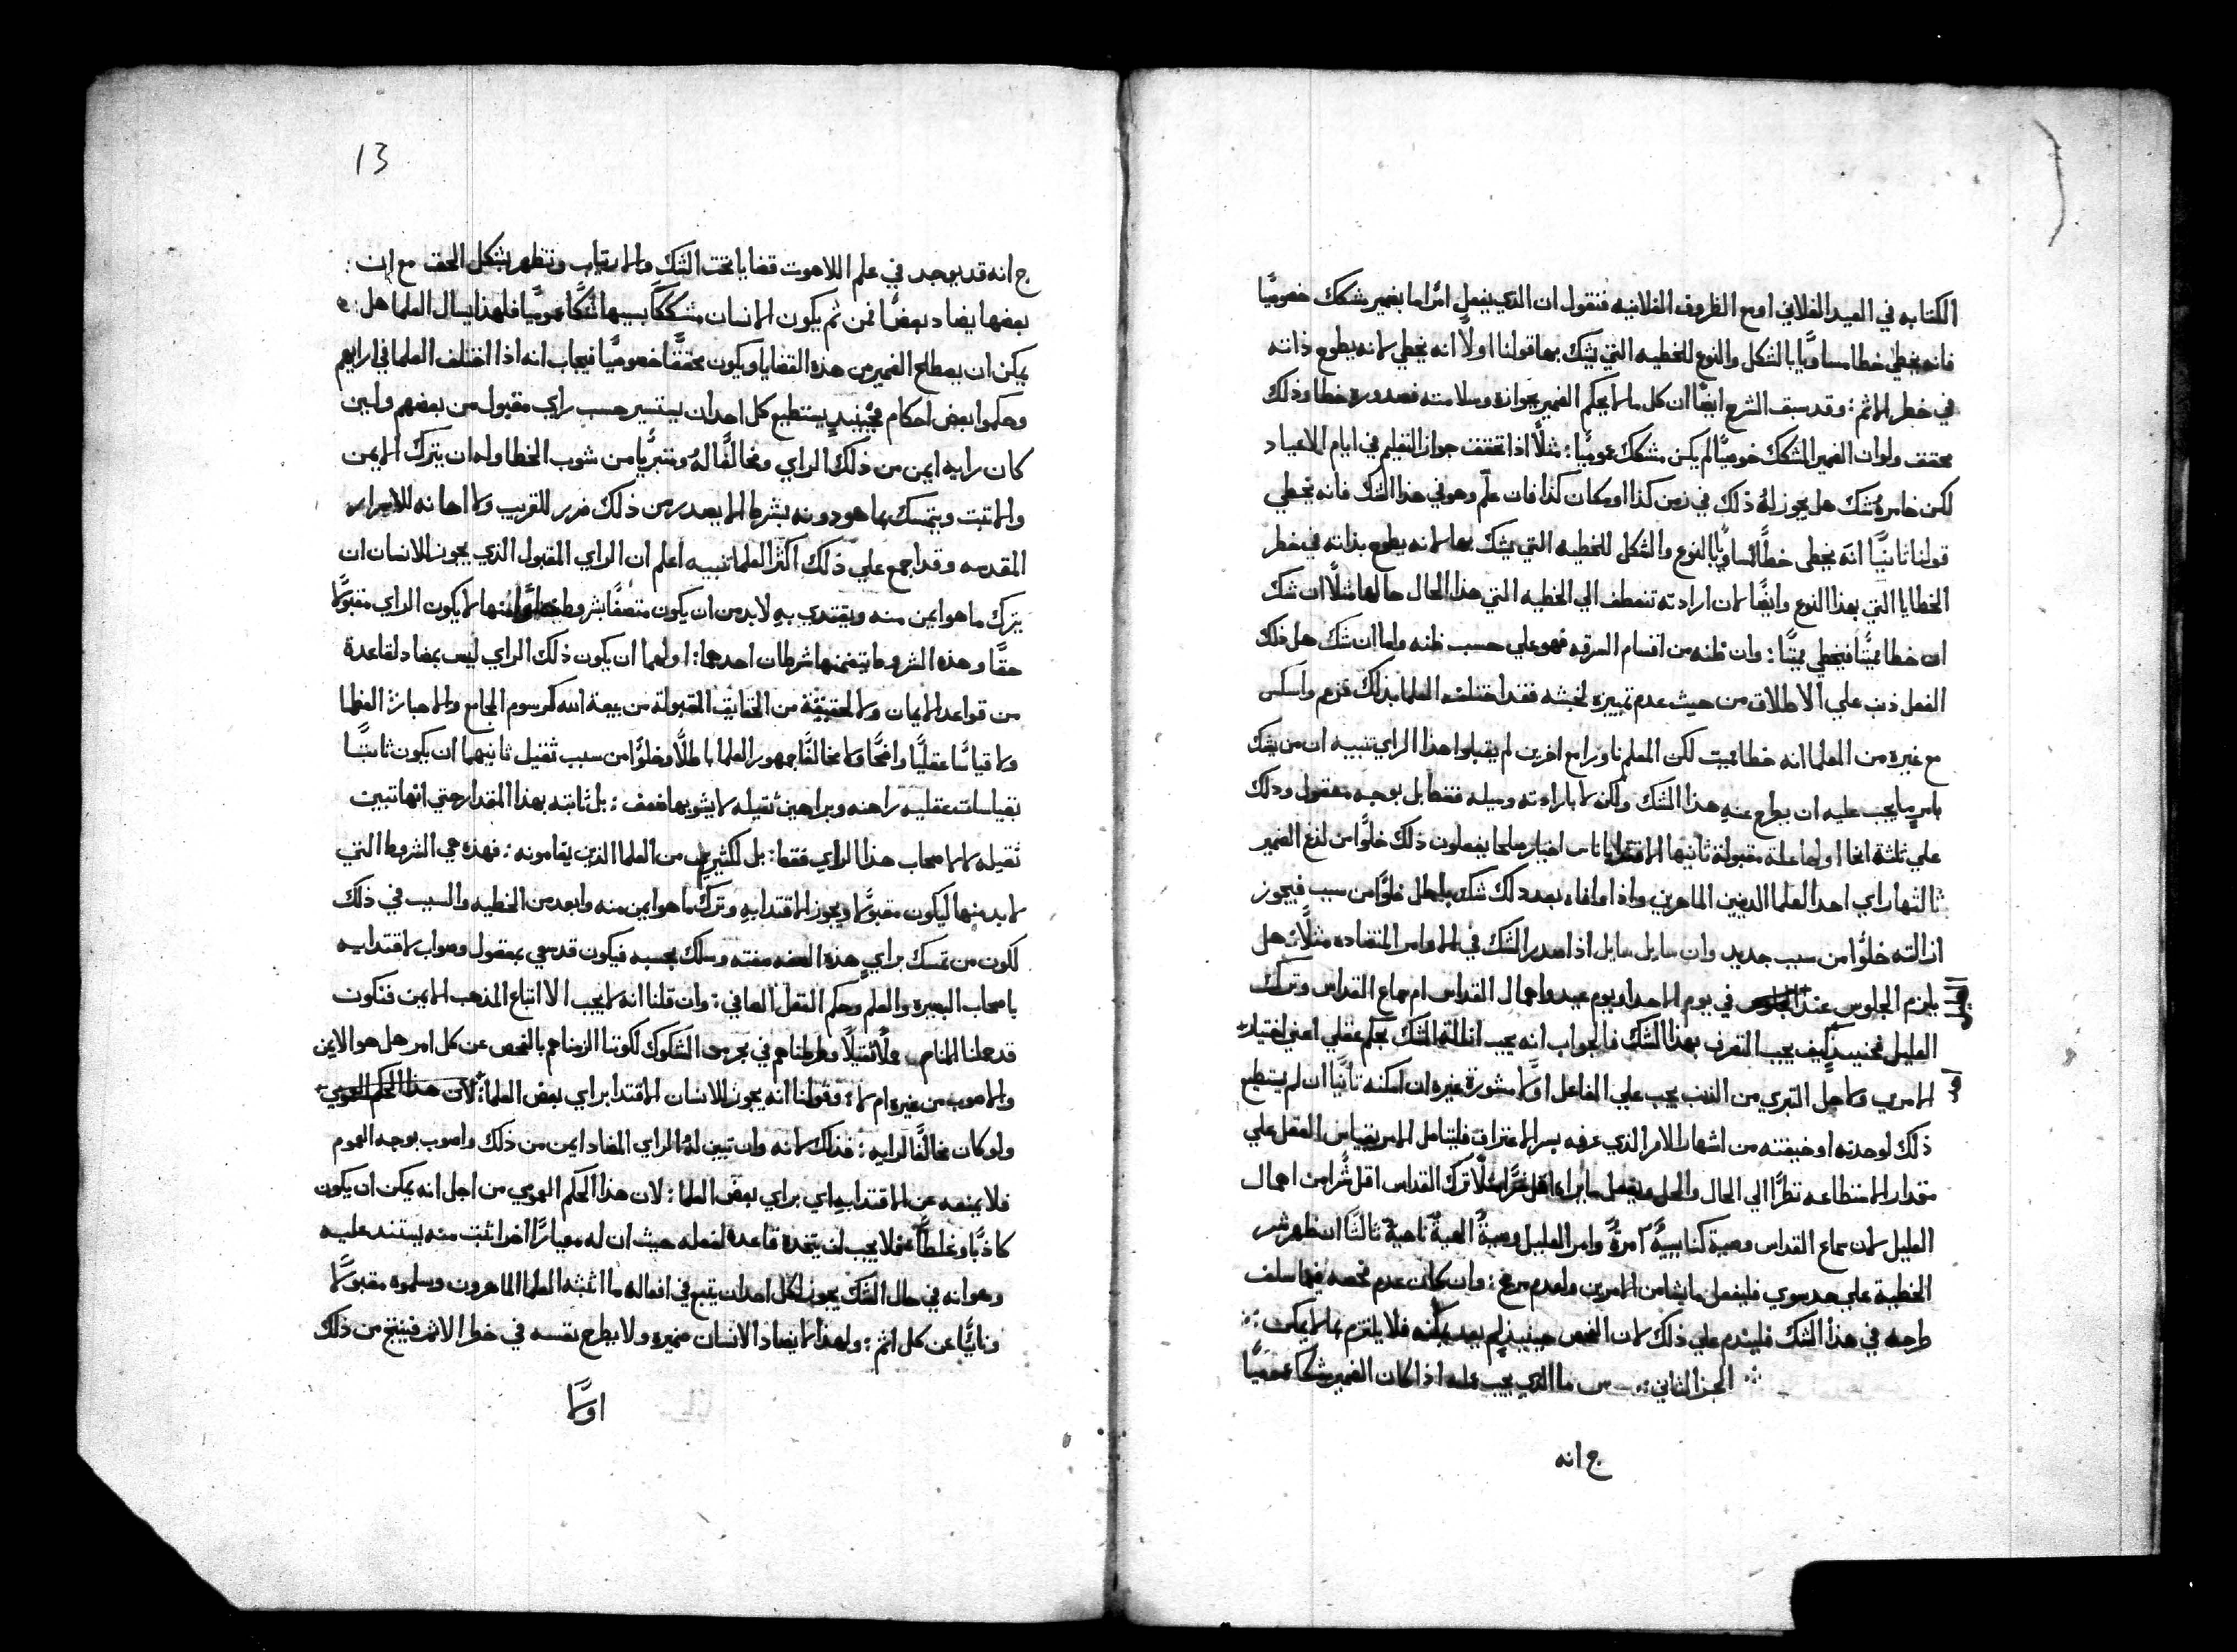 الكتابه في العيد الفلاني او مع الظروف الفلانيه فنقول ان الذي يفعل امرًا ما بضمير مشكك خصوصيًا
فانه يخطي خطا مساويًا بالشكل والنوع للخطيه التي يشك بها قولنا اولًا انه يخطي لانه يطوع ذاته
في خطر الاثم : وقد سبق الشرح ايضًا ان كل ما لا يحكم الضمير بجوازه وسلامته فصدوره خطا وذلك
محقق ولو ان الضمير المشكك خصوصيًا لم يكن مشكك عموميًا : مثلًا اذا تحقق جواز التعليم في ايام الاعياد
لكن خامره شك هل يجوز له ذلك في زمن كذا او مكان كذا فان علّم وهو في هذا الشك فانه يخطي
قولنا ثانيًا انه يخطى خطًا مساويًا بالنوع والشكل للخطيه التي يشك بها لانه يطوع بذاته في خطر
الخطايا التي بهذا النوع وايضًا لان ارادته تنعطف الي الخطيه التي هذا الحال حالها مثلًا ان شك
ان خطا مميتًا فيخطي مميتًا : وان ظنه من اقسام السرقه فهو علي حسب ظنه واما ان شك هل ذلك
الفعل ذنب علي الاطلاق من حيث عدم تمييزه لخبثه فقد اختلف العلما بذلك فزعم واسكس
مع غيره من العلما انه خطا مميت لكن المعلم ناورا مع اخرين لم يقبلوا هذا الراي تنبيه ان من يشك
بامرٍ ما يجب عليه ان يطرح عنه هذا الشك ولكنه لا بارادته وميله فقط بل بوجه معقول وذلك
علي ثلثة انحا اولها علة مقبولة ثانيها الاقتدا باناس اخيار صلحا يفعلون ذلك خلوًا من لذع الضمير
ثالثها راي احد العلما الدينين الماهرين واذا وافاه بعد ذلك شك باطل خلوًا من سبب فيجوز
ازالته خلوًا من سبب جديد وان سايل سايل اذا صدر الشك في الاوامر المتضاده مثلًا هل
يلزم الجلوس عند في يوم الاحد او يوم عيد واهمال القداس ام سماع القداس وترك
العليل فحينيذٍ كيف يجب التصرف بهذا الشك فالجواب انه يجب ازالة الشك بحكم عقلي اعني اختيار
الامرين ولاجل التبري من الذنب يجب علي الفاعل اولًا مشورة غيره ان امكنه ثانيًا ان لم يستطع
ذلك لوحدته او خيفته من اشهار الامر الذي عرفه بسر الاعتراف فليتامل الامر بقياس العقل علي
مقدار الاستطاعه نظرًا الي الحال والمحل ويفعل ما يراه اقل شرًا مثلًا ترك القداس اقل شرًا من اهمال
العليل لان سماع القداس وصية كنايسيةٌ آمرةٌ وامر العليل وصيةٌ الهيةٌ ناهيةٌ ثالثًا ان ظهر شر
الخطية علي حد سوي فليفعل ما يشا من الامرين ولعدم مرجح : وان كان عدم فحصه فيما سلف
طرحه في هذا الشك فليندم علي ذلك لان الفحص حينيذٍ لم يعد يمكنه فلا يلتزم بما لا يمكن :
الجز الثاني : س ما الذي يجب عمله اذا كان الضمير مشككا عموميًا
ج انه
13
ج انه قد يوجد في علم اللاهوت قضايا تحت الشك والارتياب وتظهر بشكل الحق مع ان
بعضها يضاد بعضًا فمن ثم يكون الانسان مشككًا بسببها شكًا عموميًا فلهذا يسال العلما هل
يمكن ان يصطلح الضمير من هذه القضايا ويكون محققًا خصوصيًا فيجاب انه اذا اختلف العلما في ارايهم
وحكموا بعض احكام فحينيذٍ يستطيع كل احد ان يستسير حسب راي مقبول من بعضهم ولين
كان رايه ايمن من ذلك الراي ومخالفًا لهُ ومتبريًا من شوب الخطا وله ان يترك الايمن
والاثبت ويتمسك بما هو دونه بشرط الا يصدر من ذلك ضرر للقريب ولا اهانه للاسرار
المقدسه وقد اجمع علي ذلك اكثر العلما تنبيه اعلم ان الراي المقبول الذي يجوز للانسان ان
يترك ما هو ايمن منه ويقتدي به لابد من ان يكون متصفًا بشروط منها لا يكون الراي مقبولًا
حقًا وهذه الشروط يتضمنها شرطان احدهما : اولهما ان يكون ذلك الراي ليس بمضاد لقاعدة
من قواعد الايمان ولا لحقيقة من الحقايق المقبولة من بيعة الله كرسوم المجامع والاحبار العظما
ولا قياسًا عقليًا واضحًا ولا مخالفًا جمهور العلما باطلًا وخلوًا من سبب ثقيل ثانيهما ان يكون ثابتًا
بقياسات عقليه راهنه وبراهين ثقيله لا يشوبها ضعف : بل ثابته بهذا المقدار حتي انها تبين
ثقيله لا لاصحاب هذا الراي فقط : بل لكثيرين من العلما الذين يقاومونه : فهذه هي الشروط التي
لا بد منها ليكون مقبولًا ويجوز الاقتدا به وترك ما هو ايمن منه وابعد من الخطيه والسبب في ذلك
لكون من تمسك براي هذه الصفه صفته وسلك بحسبه فيكون قد سعي بمعقول وصواب لاقتدايه
باصحاب البصيرة والعلم وحكم العقل الصافي : وان قلنا انه لا يجب الا اتباع المذهب الايمن فنكون
قد حملنا الناس حملًا ثقيلًا وطرحناهم في بحر من الشكوك لكوننا الزمناهم بالفحص عن كل امر هل هو الايمن
والاصوب من غيره ام لا : وقولنا انه يجوز للانسان الاقتدا براي بعض العلما : لان هذا الحكم العمومي
ولو كان مخالفًا لرايه : فذلك لانه وان تبين لهُ الراي المضاد ايمن من ذلك واصوب بوجه العموم
فلا يمنعه عن الاقتدا به اي براي بعض العلما : لان هذا الحكم العمومي من اجل انه يمكن ان يكون
كاذبًا وغلطًا فلا يجب ان يتخذه قاعدة لفعله حيث ان له معيارًا اخر اثبت منه يستند عليه
وهو انه في حال الشك يجوز لكل احد ان يتبع في افعاله ما اثبته العلما الماهرون وسلموه مقبولًا
ونايًا عن كل اثم : ولهذا لا يضاد الانسان ضميره ولا يطرح نفسه في خطر الاثم فينتج من ذلك
اولًا